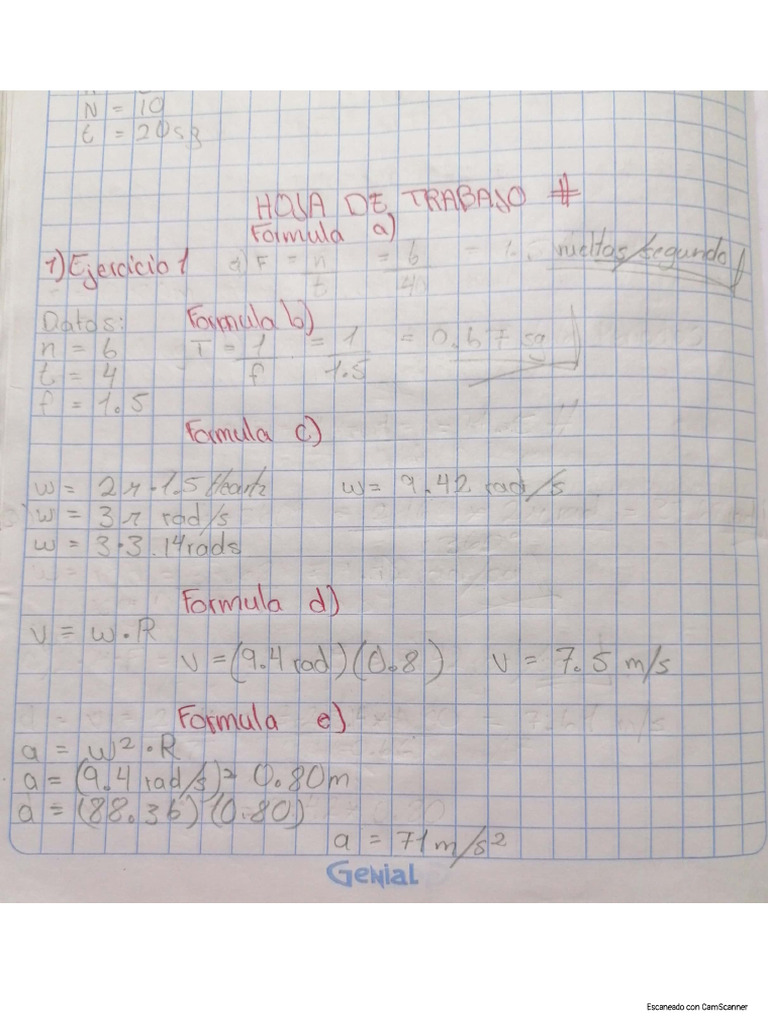 N = 10
t = 20sg
HOJA DE TRABAJO #
Formula a)
1) Ejercicio 1
a) F = n/t = 6/4 = 1.5 vueltas/segundo
Datos:
Formula b)
n = 6
T = 1/f = 1/1.5 = 0.67 sg
t = 4
f = 1.5
Formula c)
w = 2π·1.5 Heartz w = 9.42 rad/s
w = 3π rad/s
w = 3·3.14rads
Formula d)
v = w·R
v = (9.4 rad)(0.8) v = 7.5 m/s
Formula e)
a = w²·R
a = (9.4 rad/s)² 0.80m
a = (88.36)(0.80)
a = 71 m/s²
Genial
Escaneado con CamScanner